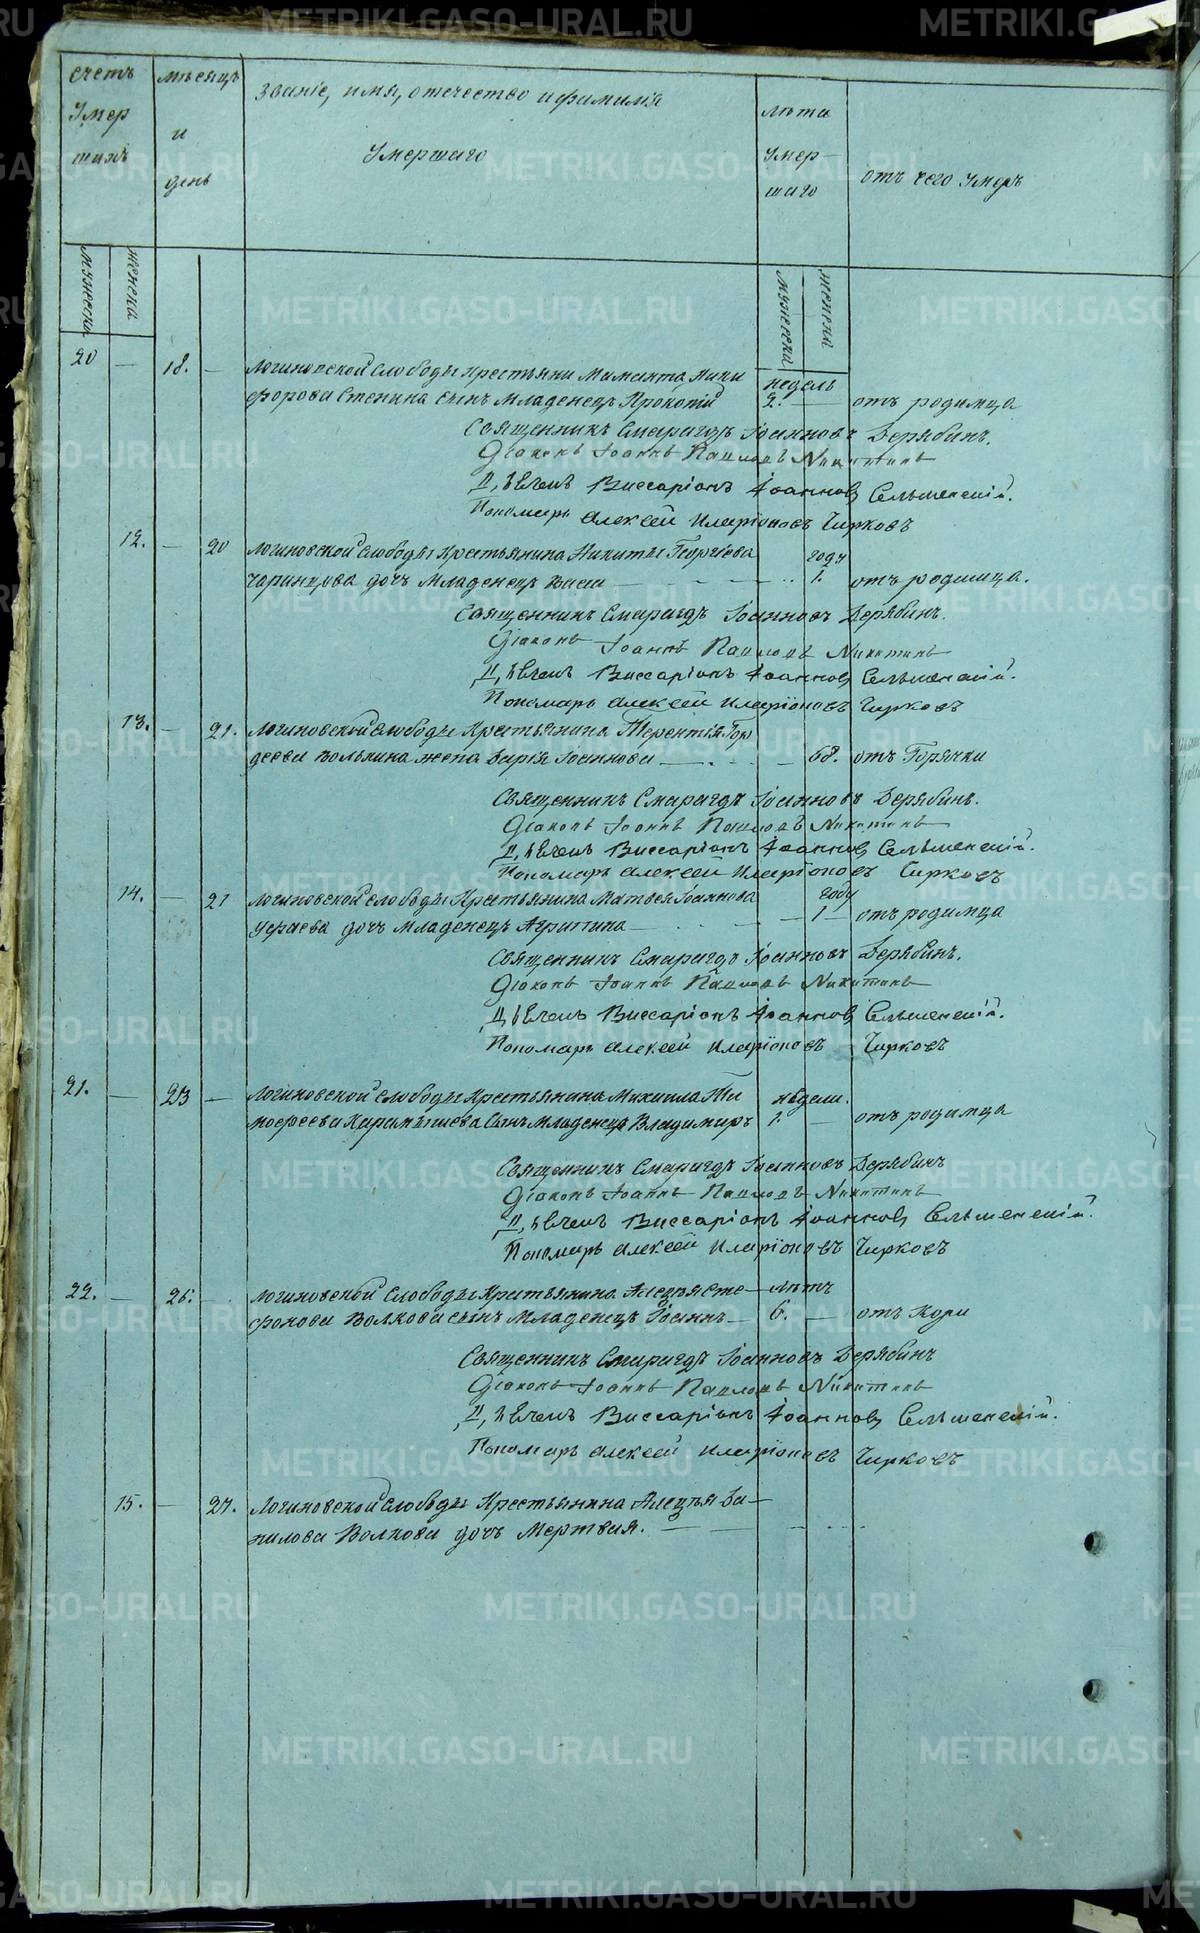 счетъ
Умер
шихъ
мѣсяцъ
и
день
Званіе, имя, отечество и фамилія
Умершаго
лѣта
Умер-
шаго
отъ чего Умеръ
мужеска
женска
мужеска
женска
20 — 18. — Логиновской слободы Крестьяни Маманта Ники
недель
форова Стенина сынъ Младенецъ Прокопій 2. — отъ родимца
Священникъ Смарагдъ Іоанновъ Дерябинъ.
Діаконъ Іоаннъ Павловъ Никитинъ
Дьячекъ Виссаріонъ Іоанновъ Сельменскій.
Пономарь Алексей Иларіоновъ Чирковъ
12. — 20 Логиновской слободы Крестьянина Никиты Георгіева
году
Чаринцова дочь Младенецъ Васса — 1. отъ родимца.
Священникъ Смарагдъ Іоанновъ Дерябинъ.
Діаконъ Іоаннъ Павловъ Никитинъ
Дьячекъ Виссаріонъ Іоанновъ Сельменскій.
Пономарь Алексей Иларіоновъ Чирковъ
13. — 21. Логиновской слободы Крестьянина Терентія Гор
деева Волкина жена Дарія Іоаннова — 68. отъ Горячки
Священникъ Смарагдъ Іоанновъ Дерябинъ.
Діаконъ Іоаннъ Павловъ Никитинъ
Дьячекъ Виссаріонъ Іоанновъ Сельменскій.
Пономарь Алексей Иларіоновъ Чирковъ
14. — 21 Логиновской слободы Крестьянина Матвея Іоаннова
году
дочь Младенецъ Агрипина — 1 — отъ родимца
Священникъ Смарагдъ Іоанновъ Дерябинъ.
Діаконъ Іоаннъ Павловъ Никитинъ
Дьячекъ Виссаріонъ Іоанновъ Сельменскій.
Пономарь Алексей Иларіоновъ Чирковъ
21. — 23 — Логиновской слободы Крестьянина Михаила Ти
недели.
мофеева Карамышева Сынъ Младенецъ Владимиръ 1. — отъ родимца
Священникъ Смарагдъ Іоанновъ Дерябинъ
Діаконъ Іоаннъ Павловъ Никитинъ
Дьячекъ Виссаріонъ Іоанновъ Сельменскій.
Пономарь Алексей Иларіоновъ Чирковъ
22. — 26. Логиновской Слободы Крестьянина Алексѣя Сте-
лѣтъ
фонова Волкова сынъ Младенецъ Іоаннъ — 6. — отъ Кори
Священникъ Смарагдъ Іоанновъ Дерябинъ
Діаконъ Іоаннъ Павловъ Никитинъ
Дьячекъ Виссаріонъ Іоанновъ Сельменскій.
Пономарь Алексей Иларіоновъ Чирковъ
15. — 27. Логиновской слободы Крестьянина Алексѣя Да-
нилова Волкова дочь Мертвая. —
METRIKI.GASO-URAL.RU